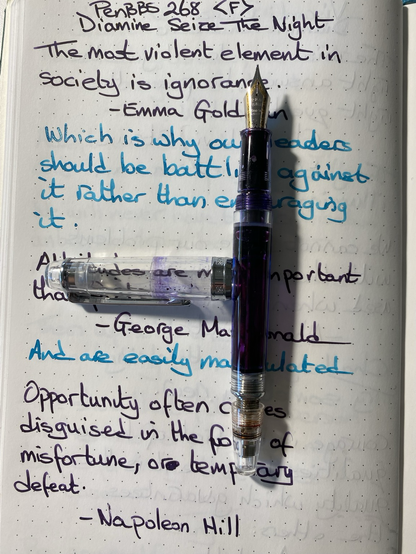 PenBBS 268 <F>
Diamine Seize The Night
The most violent element in
society is ignorance.
-Emma Goldman
Which is why our leaders
should be battling against
it rather than encouraging
it.
Attitudes are more important
than
-George MacDonald
And are easily manipulated
Opportunity often comes
disguised in the form of
misfortune, or temporary
defeat.
-Napoleon Hill